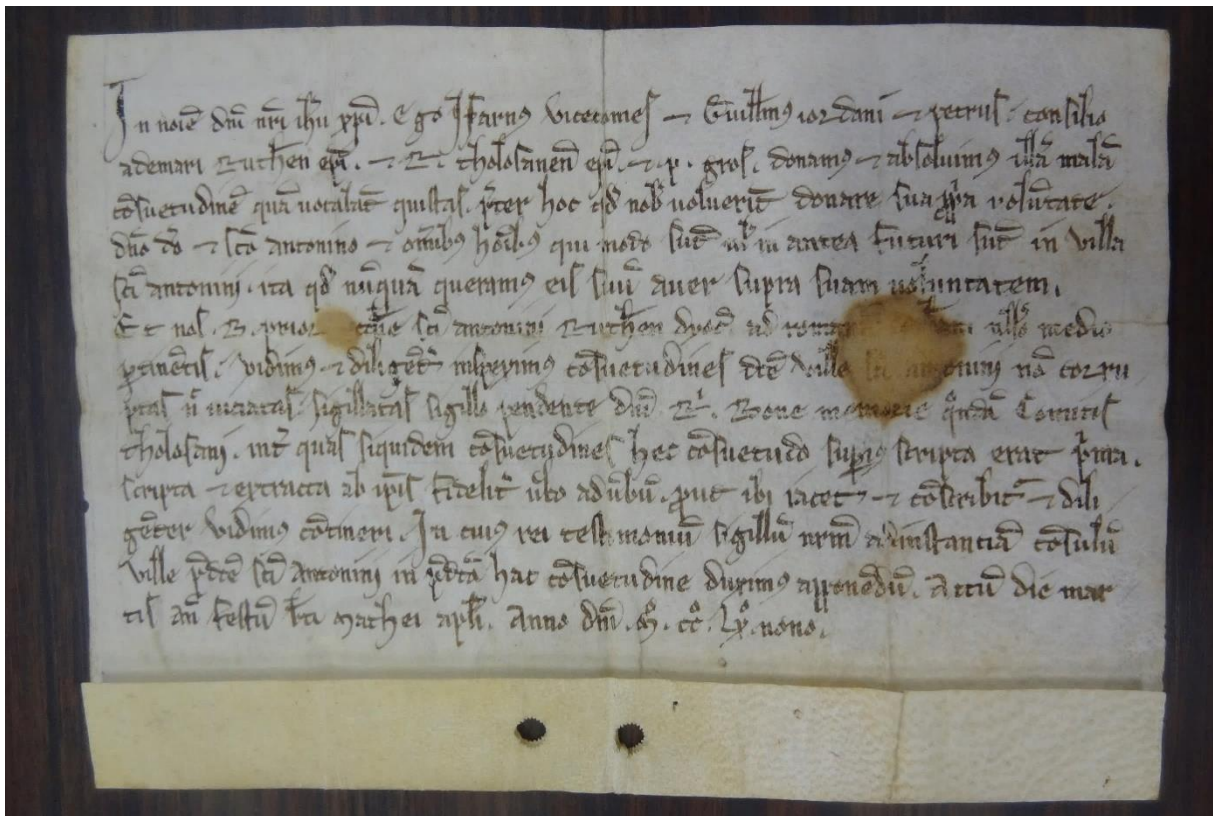 In noīe dn̄i nr̄i ih̄u xp̄i. Ego Isarnus vicecomes ⁊ Guill̄mus iordani ⁊ petrus. consilio
ademari Ruthen̄ ep̄i. ⁊ R. tholosanen̄ ep̄i. ⁊ p. gros. donamus ⁊ absoluimus illā malā
cōsuetudinē quā uocabāt quistas. p̄ter hoc qd̄ nob̄ uoluerīt donare sua pp̄a volūtate.
dn̄o dō ⁊ sc̄o antonino ⁊ om̄ibus hoībus qui modo sūt ul̄ in antea futuri sūt in villa
sc̄i antonini. ita qd̄ nūquā queramus eis suū aver supra suam voluntatem.
Et nos. B. prior sc̄i antonini Ruthen̄ dyoc̄ ad nullo medio
ptinētis. vidimus ⁊ diligēt̄ inspeximus cōsuetudines dc̄e ville sc̄i antonini nō corru
ptas n̄ uiciatas. sigillatas sigillo pendente dn̄i R. Bone memorie qōdā Comitis
tholosani. int̄ quas siquidem cōsuetudines hec cōsuetudo sup̄ius scripta erat p̄ma.
scripta ⁊ extracta ab ip̄is fidelit̄ ūbo ad ūbū. put ibi iacet ⁊ cōscribit̄ ⁊ dili
gēter vidimus cōtineri. In cuius rei testimoniū sigillū nrm̄ ad instanciā cōsulū
ville p̄dc̄e sc̄i Antonini in p̄dc̄a hac cōsuetudine duximus apponēdū. Actū die mar
tis an̄ festū bt̄i mathei apl̄i. Anno dn̄i. m̊. cc̊. lx̊. nono.